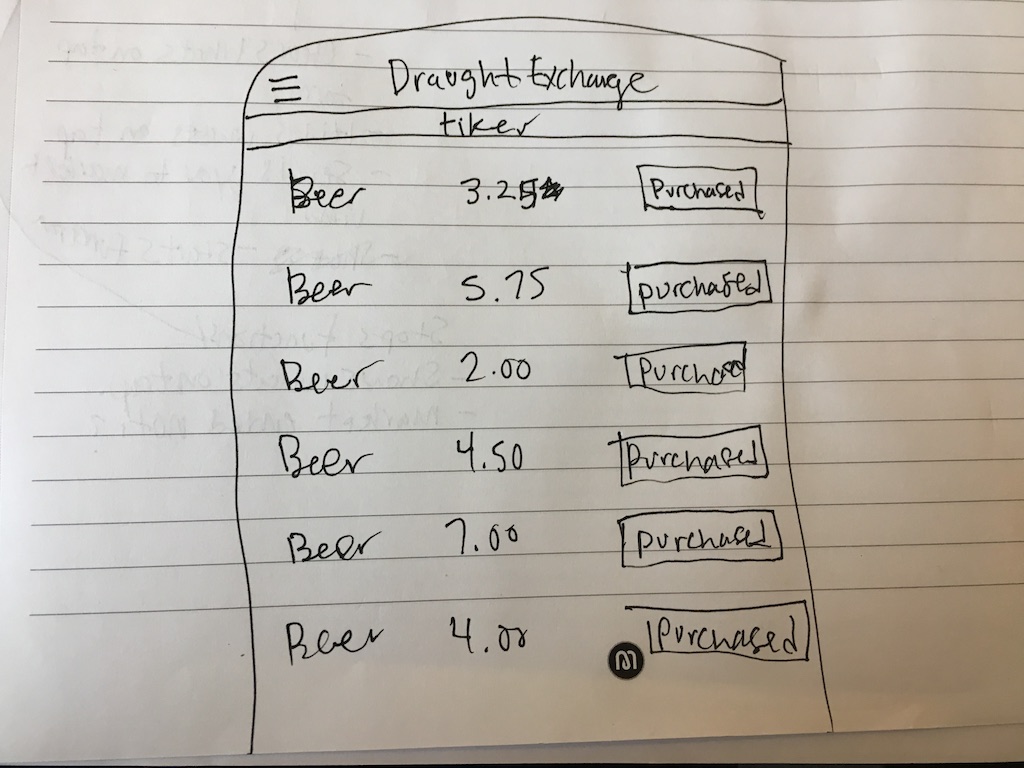 Draught Exchange
tiker
Beer 3.25 Purchased
Beer 5.75 purchased
Beer 2.00 Purchased
Beer 4.50 purchased
Beer 7.00 purchased
Beer 4.00 Purchased